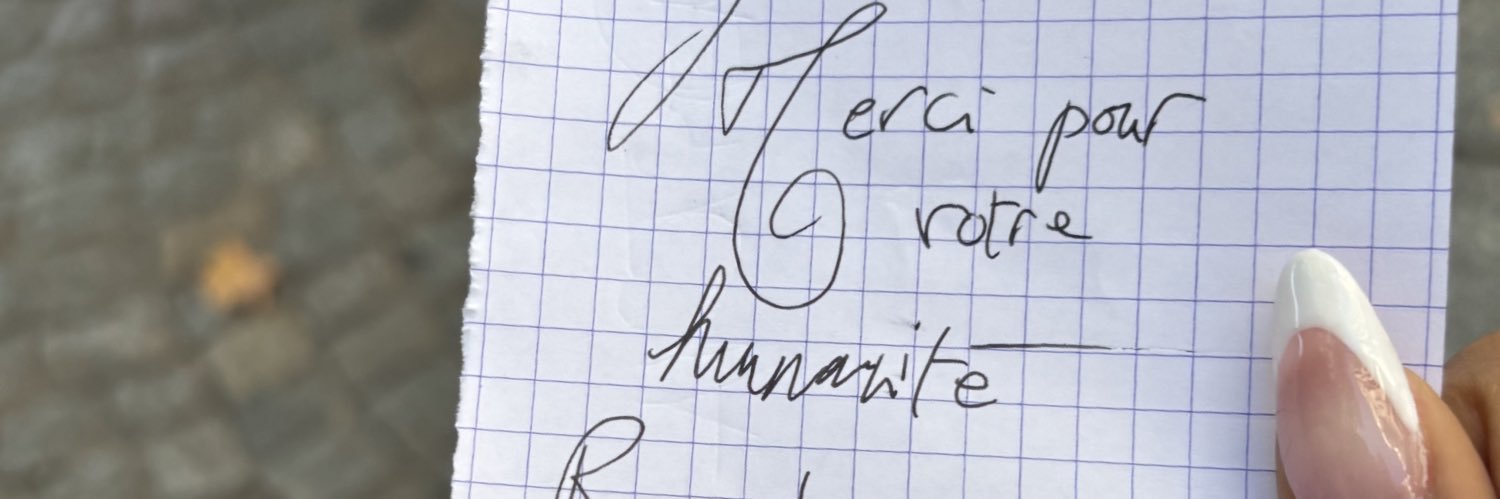 Merci pour
votre
humanité